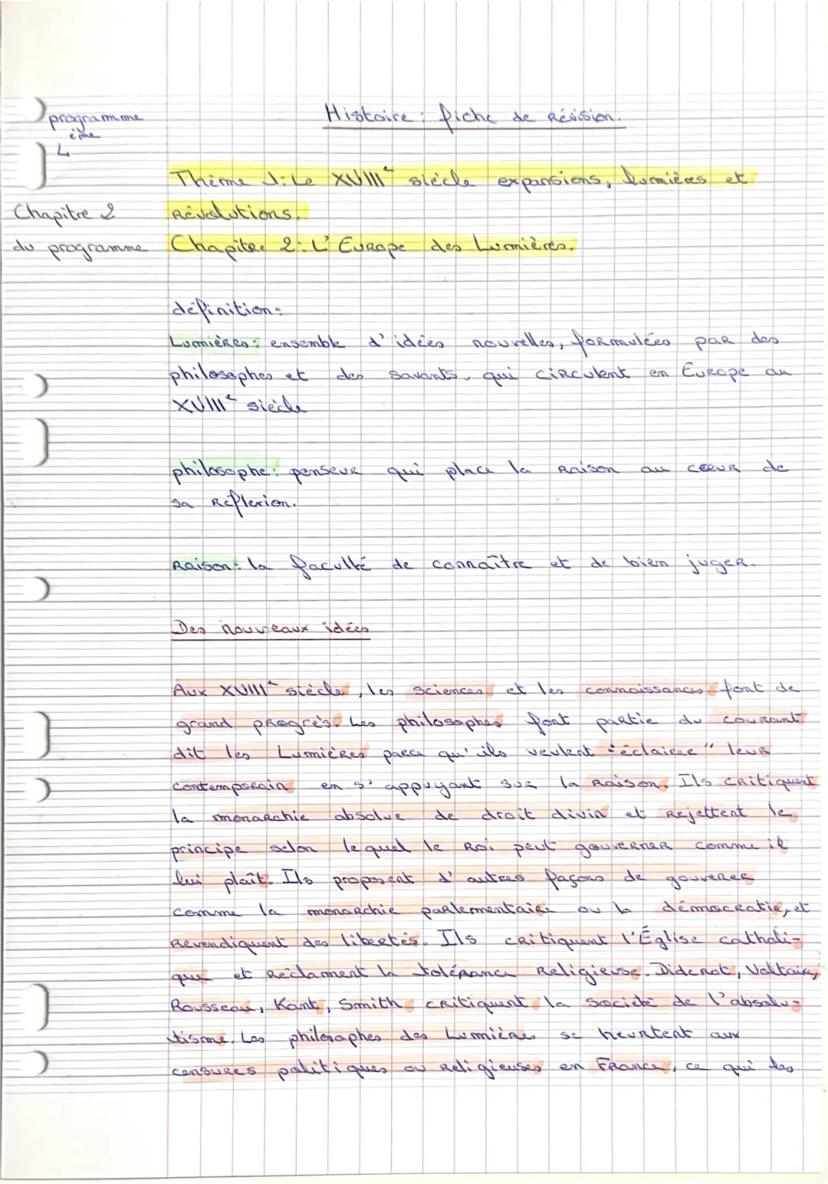 Histoire: fiche de révision.
programme
4 ème
Thème 1: Le XVIII e siècle expansions, lumières et
Révolutions.
Chapitre 2
du programme
Chapitre 2: L'Europe des Lumières.
définition:
Lumières: ensemble d'idées nouvelles, formulées par des
philosophes et des savants, qui circulent en Europe au
XVIII e siècle
philosophe: penseur qui place la raison au coeur de
sa réflexion.
Raison: la faculté de connaître et de bien juger.
Des nouveaux idées
Aux XVIII e siècle, les sciences et les connaissances font de
grand progrès. Les philosophes font partie du courant
dit les Lumières parce qu'ils veulent "éclairer" leur
contemporain en s'appuyant sur la raison. Ils critiquent
la monarchie absolue de droit divin et rejettent le
principe selon lequel le Roi peut gouverner comme il
lui plaît. Ils proposent d'autres façons de gouverner
comme la monarchie parlementaire ou la démocratie, et
revendiquent des libertés. Ils critiquent l'Église catholi-
que et réclament la tolérance religieuse. Diderot, Voltaire,
Rousseau, Kant, Smith critiquent la société de l'absolu-
tisme. Les philosophes des Lumières se heurtent aux
censures politiques ou religieuses en France, ce qui les